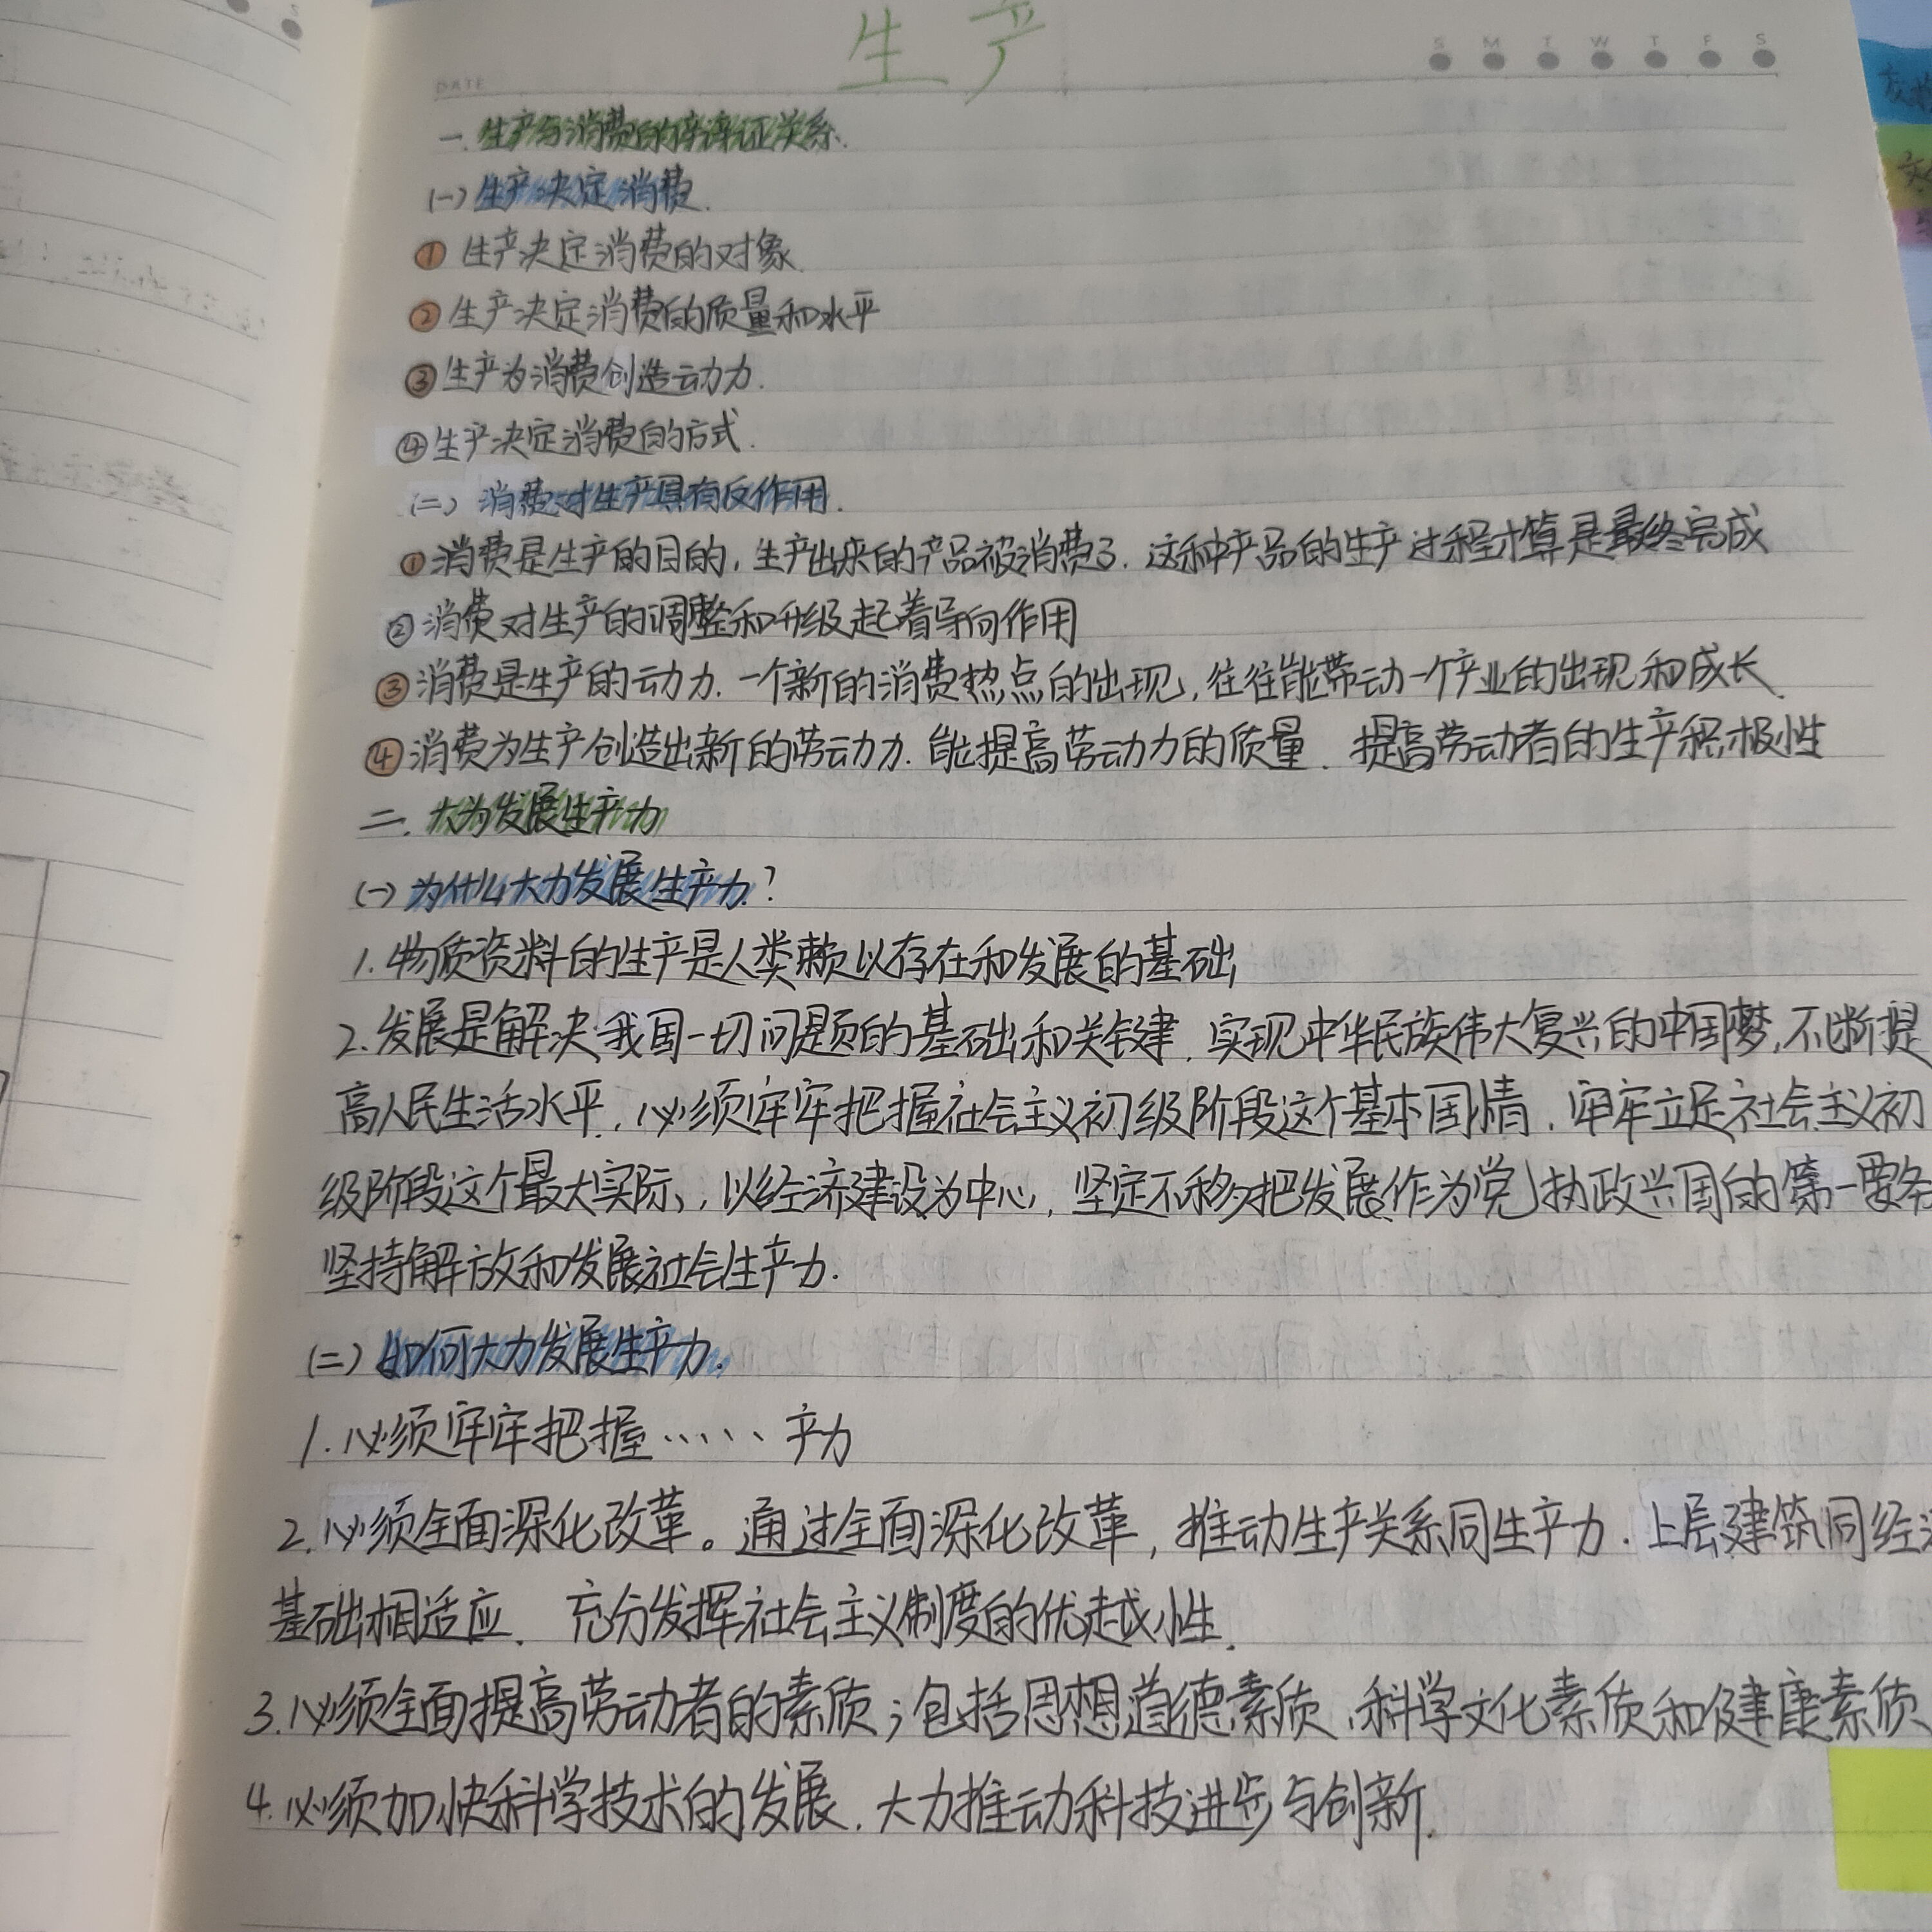 生产
DATE
S M T W T F S
一. 生产与消费的辛辩证关系.
(一) 生产决定消费.
① 生产决定消费的对象.
② 生产决定消费的质量和水平
③ 生产为消费创造动力.
④ 生产决定消费的方式.
(二) 消费对生产具有反作用.
① 消费是生产的目的, 生产出来的产品被消费了. 这种产品的生产过程才算是最终完成
② 消费对生产的调整和升级起着导向作用
③ 消费是生产的动力. 一个新的消费热点的出现, 往往能带动一个产业的出现和成长.
④ 消费为生产创造出新的劳动力. 能提高劳动力的质量. 提高劳动者的生产积极性
二. 大为发展生产力
(一) 为什么大力发展生产力?
1. 物质资料的生产是人类赖以存在和发展的基础
2. 发展是解决我国一切问题的基础和关键. 实现中华民族伟大复兴的中国梦, 不断提
高人民生活水平. 必须牢牢把握社会主义初级阶段这个基本国情. 牢牢立足社会主义初
级阶段这个最大实际, 以经济建设为中心, 坚定不移把发展作为党执政兴国的第一要务
坚持解放和发展社会生产力.
(二) 如何大力发展生产力.
1. 必须牢牢把握 ····· 产力
2. 必须全面深化改革。通过全面深化改革, 推动生产关系同生产力. 上层建筑同经济
基础相适应. 充分发挥社会主义制度的优越性.
3. 必须全面提高劳动者的素质; 包括思想道德素质、科学文化素质和健康素质
4. 必须加快科学技术的发展. 大力推动科技进步与创新.